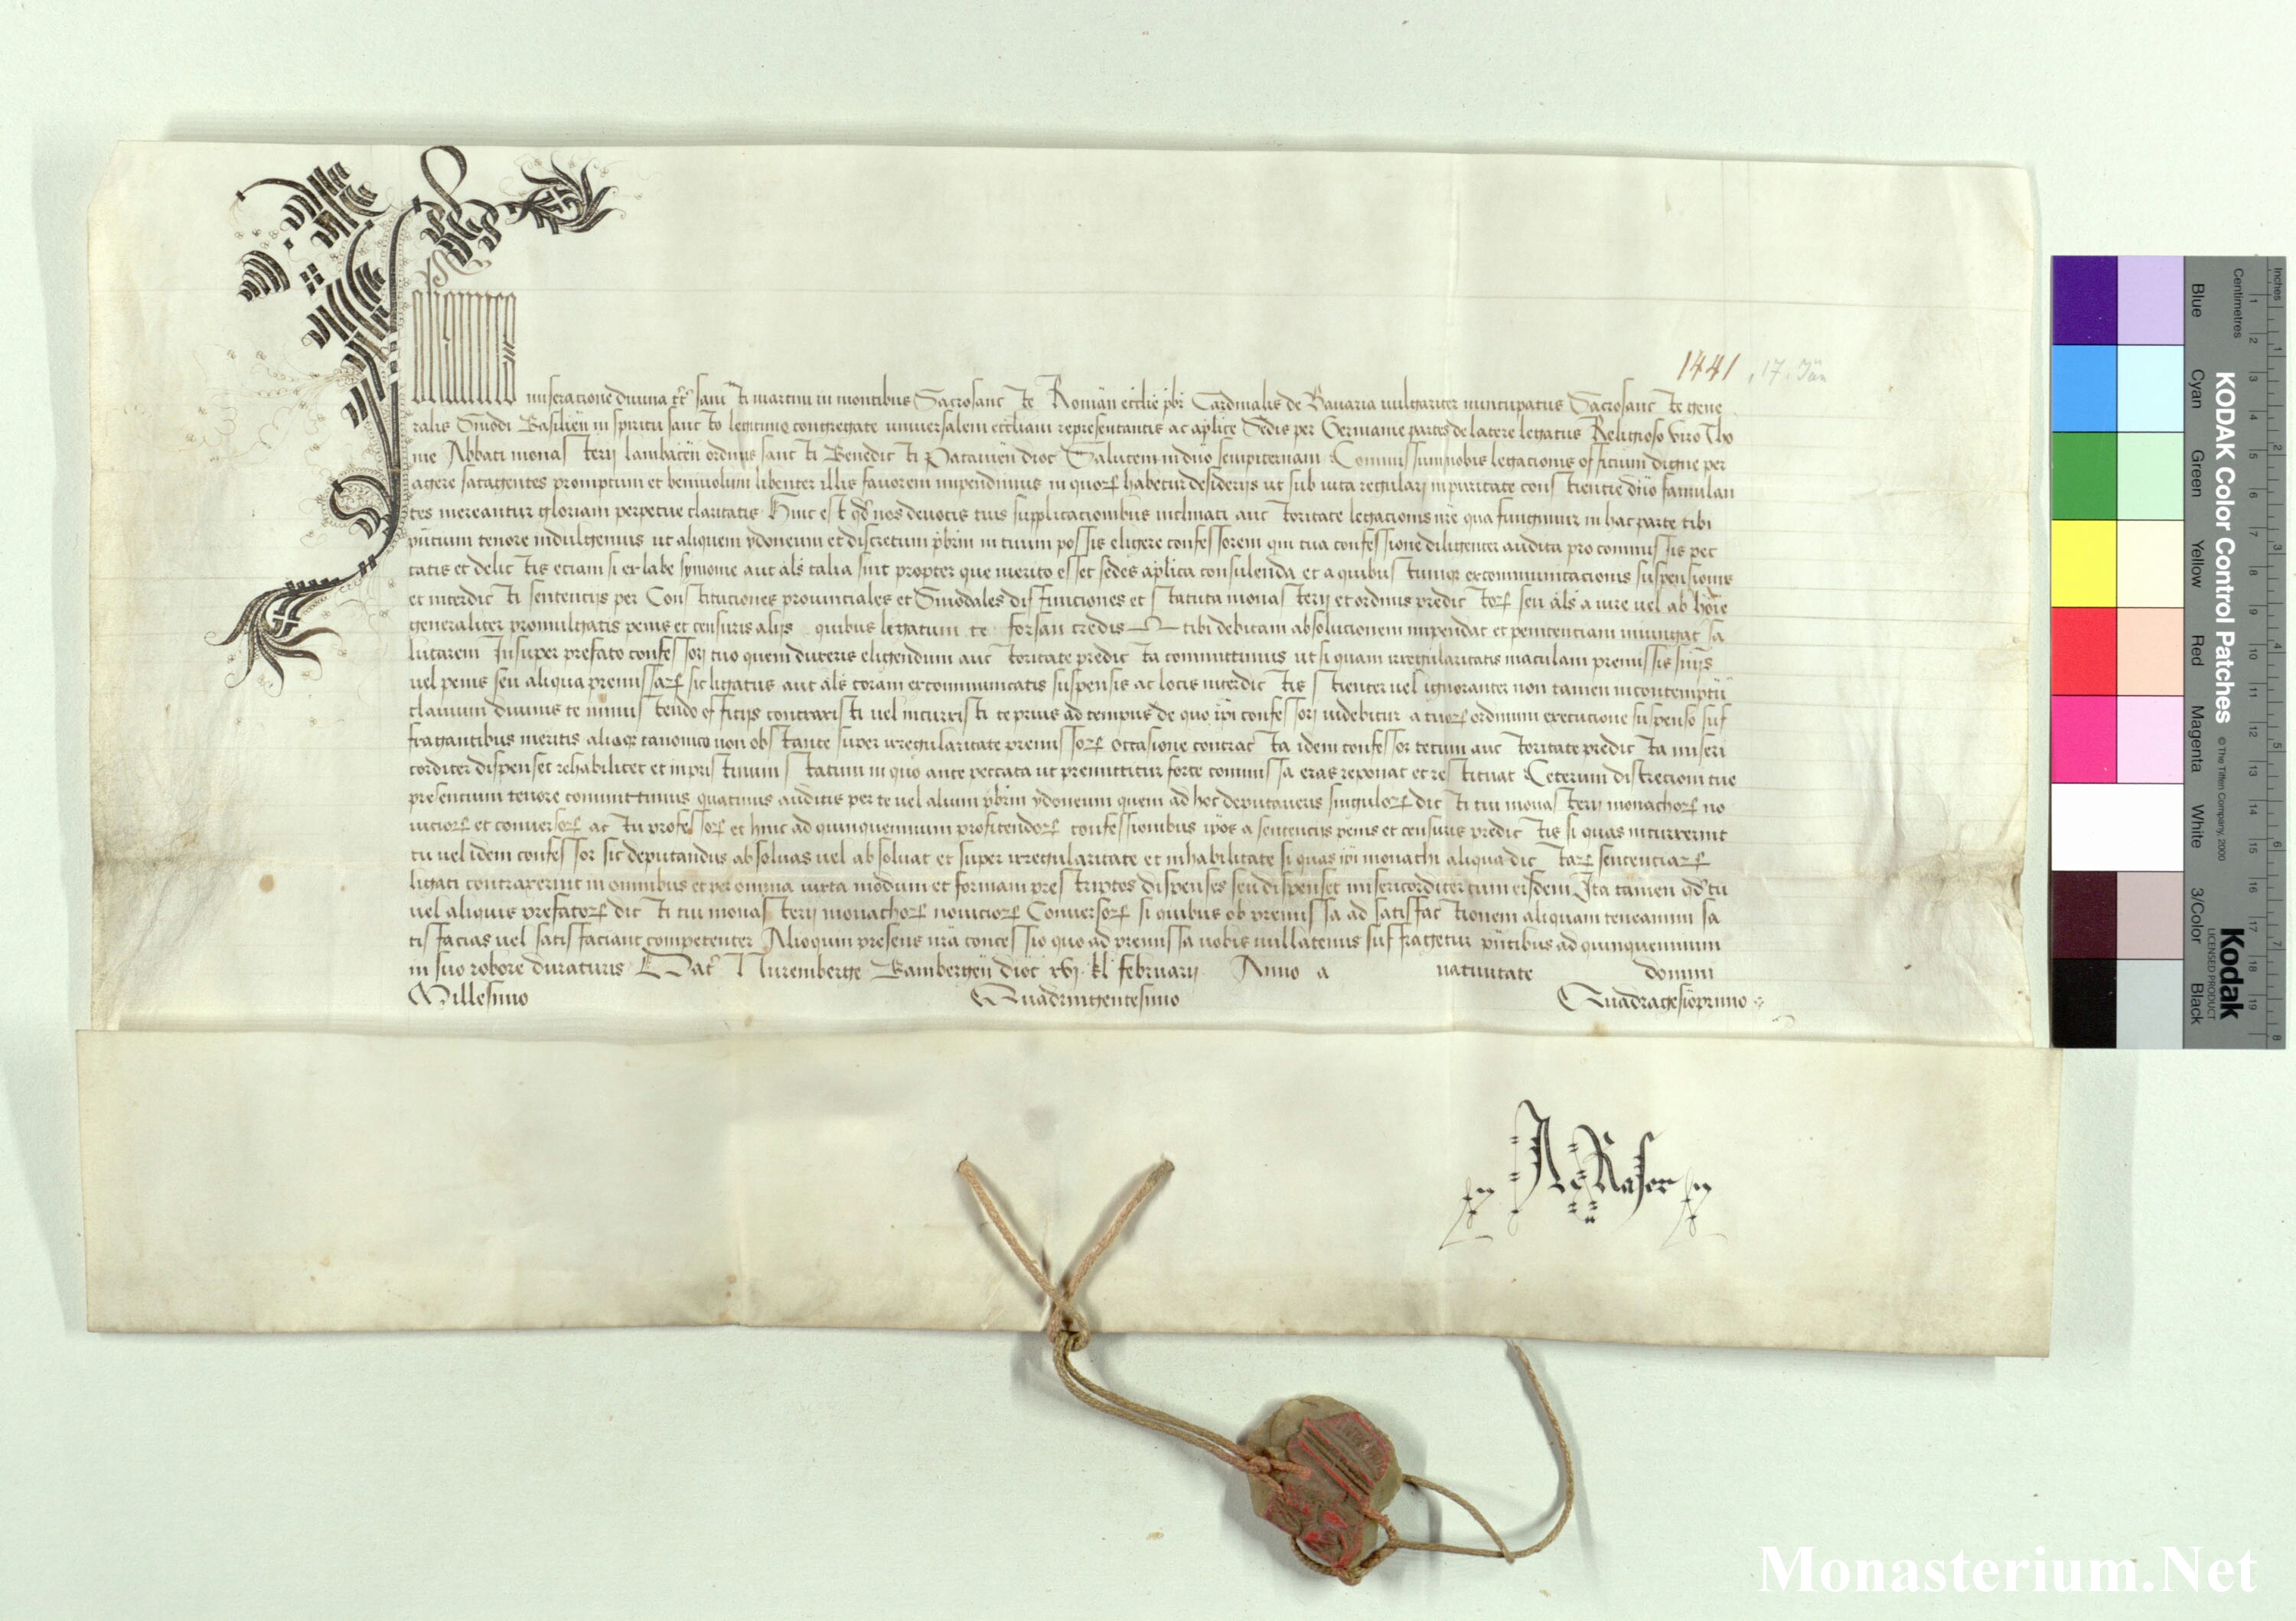 Johannes
1441, 17. Jän
miseracione divina tt͛ sancti martini in montibus Sacrosancte Roman̄ eccl̄ie pb̄r Cardinalis de Bavaria vulgariter nuncupatus Sacrosancte gene
ralis Sinodi Basilien̄ in spiritu sancto legitime congregate universalem eccl̄iam representantis ac ap̄lice Sedis per Germanie partes de latere legatus Religioso viro Tho
me Abbati monasterij lambacen̄ ordinis sancti Benedicti Patavien̄ dioc̄ Salutem in dn̄o sempiternam Commissum nobis legacionis officium digne per
agere satagentes promptum et benivolum libenter illis favorem impendimus in quorꝝ habetur desiderijs ut sub vita regulari in puritate consciencie dn̄o famulan
tes mereantur gloriam perpetue claritatis Hinc est qd̓ nos devotis tuis supplicacionibus inclinati auctoritate legacionis nr̄e qua fungimur in hac parte tibi
pn̄tium tenore indulgemus ut aliquem ydoneum et discretum pb̄rm in tuum possis eligere confessorem qui tua confessione diligenter audita pro commissis pec
catis et delictis eciam si ex labe symonie aut als̄ talia sint propter que merito esset sedes ap̄lica consulenda et a quibuscumqꝫ excommunicacionis suspensionis
et interdicti sentencijs per Constituciones provinciales et Sinodales diffiniciones et statuta monasterij et ordinis predictorꝝ seu als̄ a iure vel ab hōie
generaliter promulgatis penis et censuris alijs quibus legatum te forsan credis tibi debitam absolucionem impendat et penitenciam iniungat sa
lutarem Insuper prefato confessori tuo quem duxeris eligendum auctoritate predicta committimus ut si quam irregularitatis maculam premissis sn̄ijs
vel penis seu aliqua premissarꝝ sic ligatus aut als̄ coram excommunicatis suspensis ac locis interdictis scienter vel ignoranter non tamen in contemptū
clavium divinis te inmiscendo officijs contraxisti vel incurristi te prius ad tempus de quo ip̄i confessori videbitur a tuorꝝ ordinum execucione suspenso suf
fragantibus meritis alioqꝫ canonico non obstante super irregularitate premissorꝝ occasione contracta idem confessor tecum auctoritate predicta miseri
corditer dispenset rehabilitet et in pristinum statum in quo ante peccata ut premittitur forte commissa eras reponat et restituat Ceterum discrecioni tue
presencium tenore committimus quatinus auditis per te vel alium pb̄rm ydoneum quem ad hoc deputaveris singulorꝝ dicti tui monasterij monachorꝝ no
viciorꝝ et conversorꝝ ac tu professorꝝ et hinc ad quinquennium profitendorꝝ confessionibus ip̄os a sentencijs penis et censuris predictis si quas incurrerint
tu vel idem confessor sic deputandus absolvas vel absolvat et super irregularitate et inhabilitate si quas ip̄i monachi aliqua dictarꝝ sentenciarꝝ
ligati contraxerint in omnibus et per omnia iuxta modum et formam prescriptos dispenses seu dispenset misericorditer cum eisdem Ita tamen qd̓ tu
vel aliquis prefatorꝝ dicti tui monasterij monachorꝝ noviciorꝝ Conversorꝝ si quibus ob premissa ad satisfactionem aliquam teneamini sa
tisfacias vel satisfaciant competenter Alioquin presens nr̄a concessio quo ad premissa vobis nullatenus suffragetur pn̄tibus ad quinquennium
in suo robore duraturis Dat̄ Nuremberge Bambergen̄ dioc̄ xvj kl̄ februarij Anno a nativitate domini
Millesimo Quadringentesimo Quadragesīoprimo
Raser
Monasterium.Net
KODAK Color Control Patches
© The Tiffen Company, 2000
Kodak
LICENSED PRODUCT
Inches
Centimetres
Blue Cyan Green Yellow Red Magenta White 3/Color Black